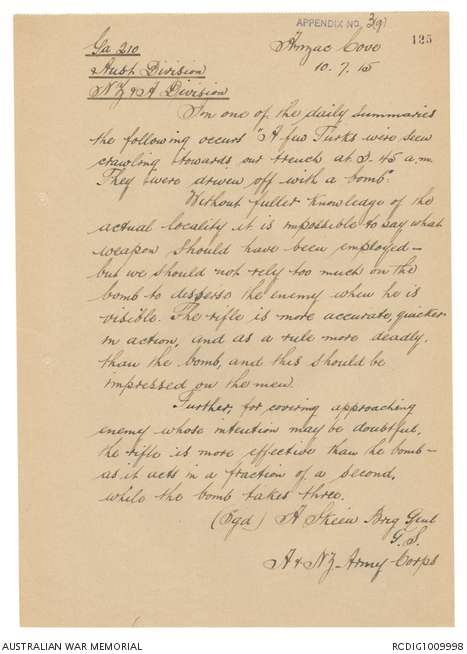 APPENDIX NO. 3(9)
125
Ga 210
Anzac Cove
Aust. Division
10.7.15
NZ & A Division
In one of the daily summaries
the following occurs "A few Turks were seen
crawling towards our trench at 2.45 a.m.
They were driven off with a bomb".
Without fuller knowledge of the
actual locality it is impossible to say what
weapon should have been employed –
but we should not rely too much on the
bomb to disperse the enemy when he is
visible. The rifle is more accurate, quicker
in action, and as a rule more deadly,
than the bomb, and this should be
impressed on the men.
Further, for covering approaching
enemy whose intention may be doubtful,
the rifle is more effective than the bomb –
as it acts in a fraction of a second,
while the bomb takes three.
(Sgd) A Skeen Brig Genl
G.S.
A & NZ Army Corps
AUSTRALIAN WAR MEMORIAL
RCDIG1009998